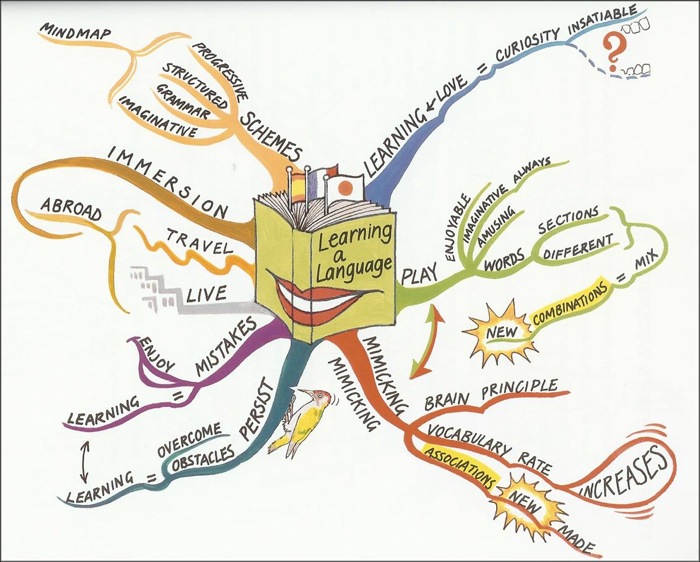 Learning
a
Language
LEARNING & LOVE = CURIOSITY INSATIABLE
?
PLAY
ENJOYABLE
IMAGINATIVE ALWAYS
AMUSING
WORDS
SECTIONS
DIFFERENT
= MIX
COMBINATIONS
NEW
MIMICKING
MIMICKING
BRAIN PRINCIPLE
VOCABULARY RATE
INCREASES
ASSOCIATIONS
NEW
MADE
PERSIST
OVERCOME
OBSTACLES
LEARNING =
MISTAKES
ENJOY
LEARNING =
LIVE
TRAVEL
ABROAD
IMMERSION
SCHEMES
PROGRESSIVE
STRUCTURED
GRAMMAR
IMAGINATIVE
MINDMAP